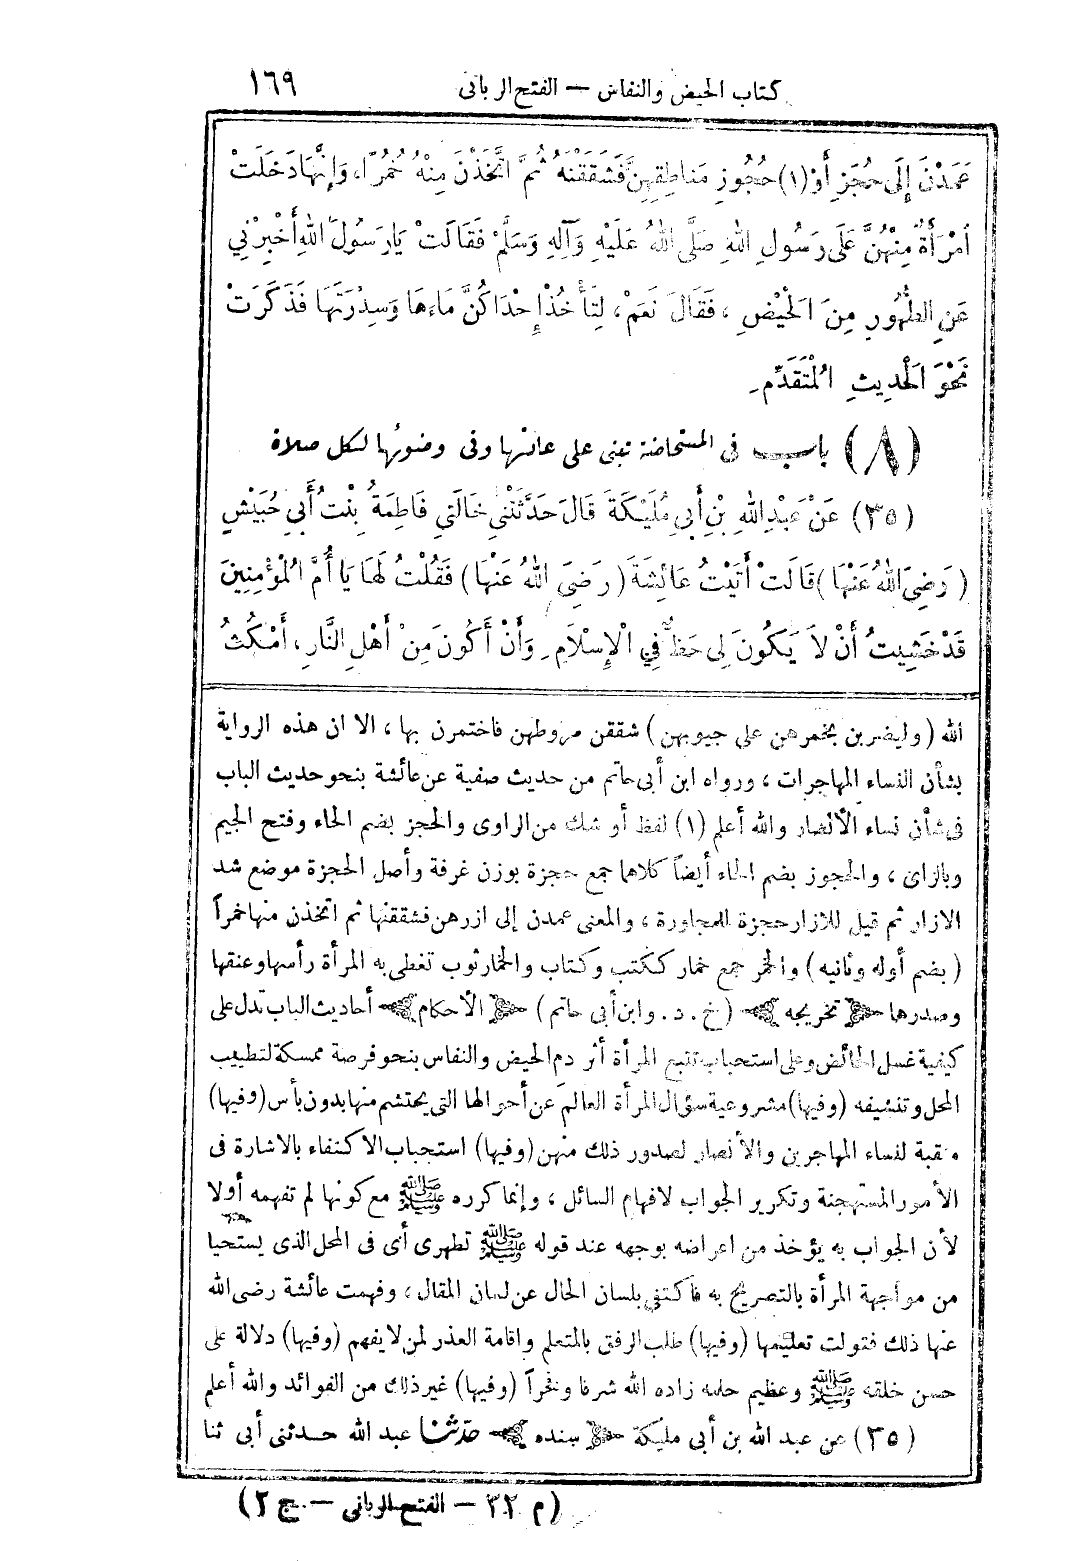 كتاب الحيض والنفاس — الفتح الربانى ١٦٩
عَمَدْنَ إِلَى حُجَزِ أَوْ (١) حُجُوزِ مَنَاطِقِهِنَّ فَشَقَقْنَهُ ثُمَّ اتَّخَذْنَ مِنْهُ خُمُرًا، وَإِنَّهَا دَخَلَتْ
اَمْرَأَةٌ مِنْهُنَّ عَلَى رَسُولِ اللهِ صَلَّى اللهُ عَلَيْهِ وَآلِهِ وَسَلَّمْ فَقَالَتْ يَارَسُولَ اللهِ أَخْبِرْنِي
عَنِ الطُّهُورِ مِنَ الْحَيْضِ، فَقَالَ نَعَمْ، لِتَأْخُذْ إِحْدَاكُنَّ مَاءَهَا وَسِدْرَتَهَا فَذَكَرَتْ
نَحْوَ الْحَدِيثِ الْمُتَقَدِّمِ.
(٨) باب فى المستحاضة تبنى على عادتها وفى وضوئها لكل صلاة
(٣٥) عَنْ عَبْدِ اللهِ بْنِ أَبِي مُلَيْكَةَ قَالَ حَدَّثَتْنِي خَالَتِي فَاطِمَةُ بِنْتُ أَبِي حُبَيْشٍ
(رَضِيَ اللهُ عَنْهَا) قَالَتْ أَتَيْتُ عَائِشَةَ (رَضِيَ اللهُ عَنْهَا) فَقُلْتُ لَهَا يَا أُمَّ الْمُؤْمِنِينَ
قَدْ خَشِيتُ أَنْ لَا يَكُونَ لِي حَظٌّ فِي الْإِسْلَامِ. وَأَنْ أَكُونَ مِنْ أَهْلِ النَّارِ، أَمْكُثُ
الله (وليضربن بخمرهن على جيوبهن) شققن مروطهن فاختمرن بها، الا ان هذه الرواية
بشأن النساء المهاجرات، ورواه ابن أبى حاتم من حديث صفية عن عائشة بنحو حديث الباب
فى شأن نساء الأنصار والله أعلم (١) لفظ أو شك من الراوى والحجز بضم الحاء وفتح الجيم
وبالزاى، والحجوز بضم الحاء أيضاً كلاهما جمع حجزة بوزن غرفة وأصل الحجزة موضع شد
الازار ثم قيل للازار حجزة للمجاورة، والمعنى عمدن إلى ازرهن فشققنها ثم اتخذن منها خمراً
(بضم أوله وثانيه) والخمر جمع خمار ككتب وكتاب والخمار ثوب تغطى به المرأة رأسها وعنقها
وصدرها ﴿تخريجه﴾ (خ. د. وابن أبى حاتم) ﴿الأحكام﴾ أحاديث الباب تدل على
كيفية غسل الحائض وعلى استحباب تتبع المرأة أثر دم الحيض والنفاس بنحو فرصة ممسكة لتطييب
المحل وتنشيفه (وفيها) مشروعية سؤال المرأة العالم عن أحوالها التى يحتشم منها بدون بأس (وفيها)
منقبة لنساء المهاجرين والأنصار لصدور ذلك منهن (وفيها) استحباب الاكتفاء بالاشارة فى
الأمور المستهجنة وتكرير الجواب لافهام السائل، وإنما كرره ﷺ مع كونها لم تفهمه أولا
لأن الجواب به يؤخذ من اعراضه بوجهه عند قوله ﷺ تطهرى أى فى المحل الذى يستحيا
من مواجهة المرأة بالتصريح به فاكتفى بلسان الحال عن لسان المقال، وفهمت عائشة رضى الله
عنها ذلك فتولت تعليمها (وفيها) طلب الرفق بالمتعلم واقامة العذر لمن لا يفهم (وفيها) دلالة على
حسن خلقه ﷺ وعظيم حلمه زاده الله شرفا وفخراً (وفيها) غير ذلك من الفوائد والله أعلم
(٣٥) عن عبد الله بن أبى مليكة ﴿سنده﴾ حدّثنا عبد الله حدثنى أبى ثنا
(م ٢٢ — الفتح الربانى — ج ٢)